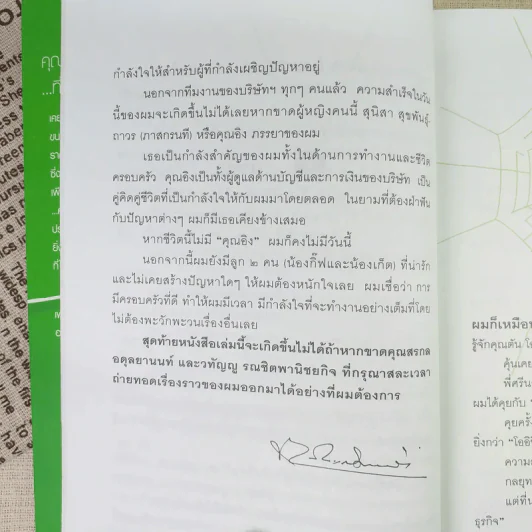 กำลังใจให้สำหรับผู้ที่กำลังเผชิญปัญหาอยู่
นอกจากทีมงานของบริษัทฯ ทุกๆ คนแล้ว ความสำเร็จในวัน
นี้ของผมจะเกิดขึ้นไม่ได้เลยหากขาดผู้หญิงคนนี้ สุนิสา สุขพันธุ์-
ถาวร (ภาสกรนที) หรือคุณอิง ภรรยาของผม
เธอเป็นกำลังสำคัญของผมทั้งในด้านการทำงานและชีวิต
ครอบครัว คุณอิงเป็นทั้งผู้ดูแลด้านบัญชีและการเงินของบริษัท เป็น
คู่คิดคู่ชีวิตที่เป็นกำลังใจให้กับผมมาโดยตลอด ในยามที่ต้องฝ่าฟัน
กับปัญหาต่างๆ ผมก็มีเธอเคียงข้างเสมอ
หากชีวิตนี้ไม่มี “คุณอิง” ผมก็คงไม่มีวันนี้
นอกจากนี้ผมยังมีลูก ๒ คน (น้องกิ๊ฟและน้องเก็ต) ที่น่ารัก
และไม่เคยสร้างปัญหาใดๆ ให้ผมต้องหนักใจเลย ผมเชื่อว่า การ
มีครอบครัวที่ดี ทำให้ผมมีเวลา มีกำลังใจที่จะทำงานอย่างเต็มที่โดย
ไม่ต้องพะวักพะวนเรื่องอื่นเลย
สุดท้ายหนังสือเล่มนี้จะเกิดขึ้นไม่ได้ถ้าหากขาดคุณสรกล
อดุลยานนท์ และวทัญญู รณชิตพานิชยกิจ ที่กรุณาสละเวลา
ถ่ายทอดเรื่องราวของผมออกมาได้อย่างที่ผมต้องการ
ผมก็เหมือน
รู้จักคุณตัน โอ
คุ้นเคย
พี่ศรีน
ผมได้คุยกับ
คุยครั้ง
ยิ่งกว่า “โออิ
ความ
กลยุท
แต่ที่น
ธุรกิจ”